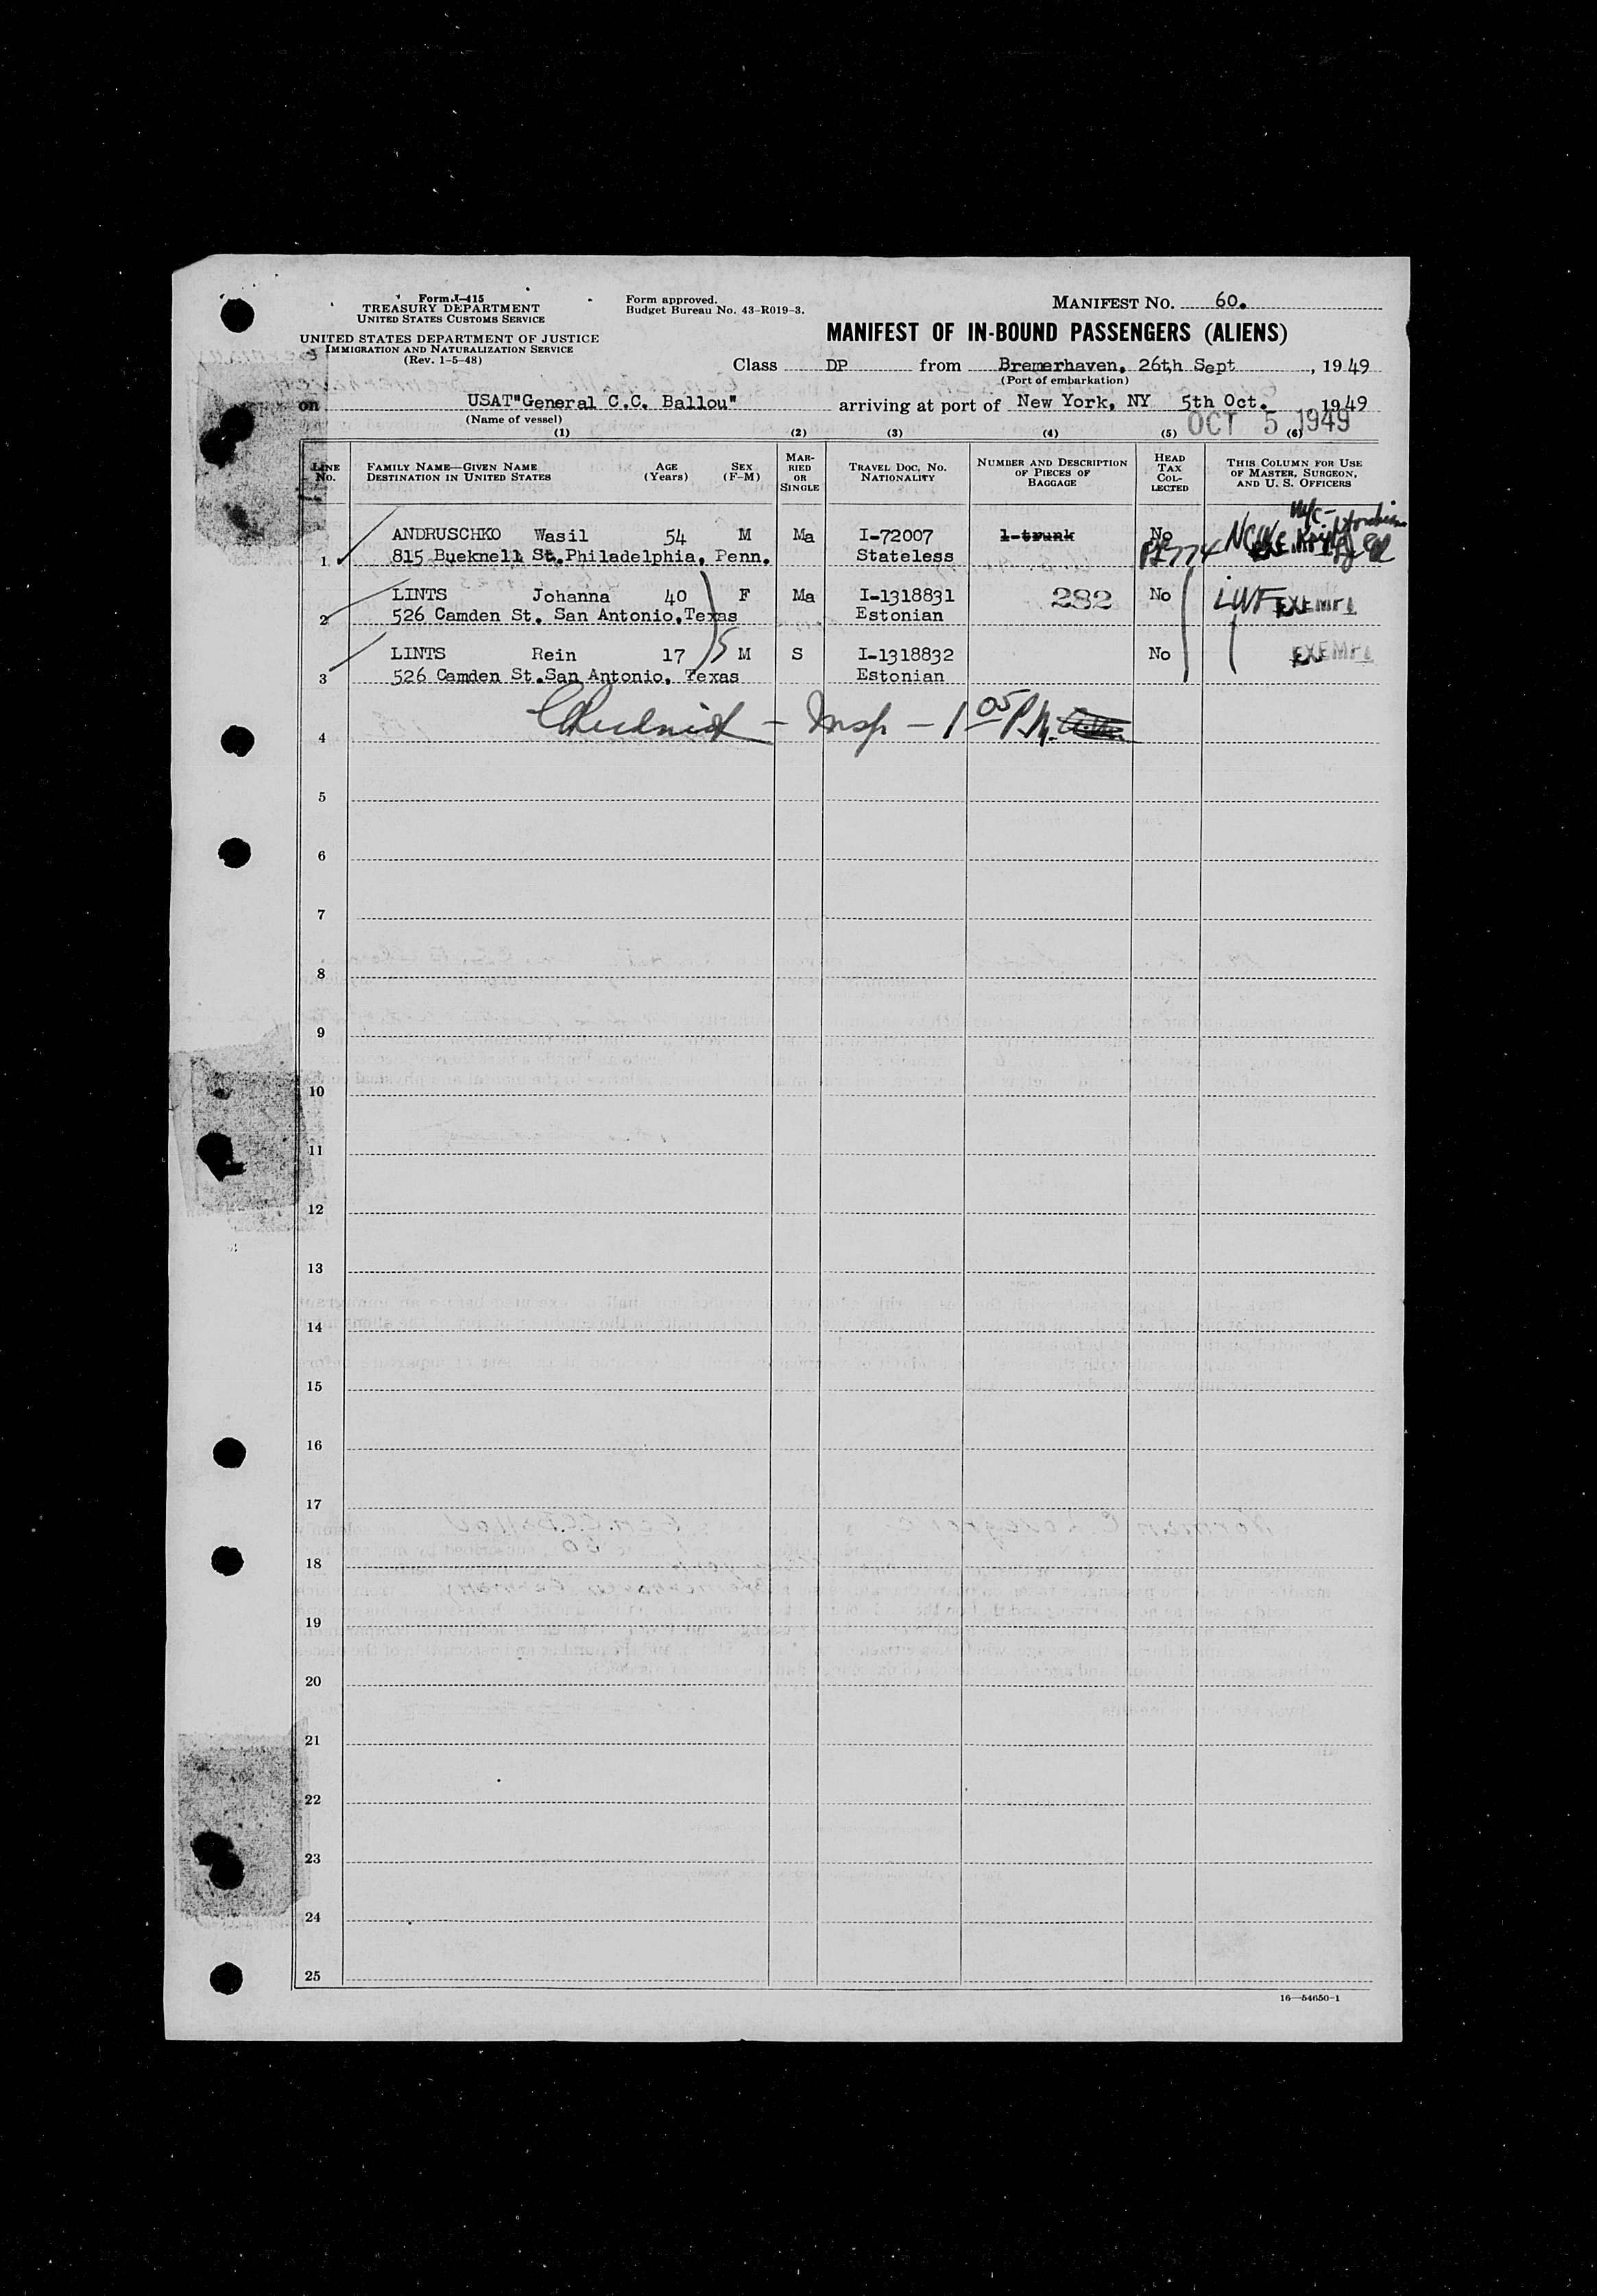 Form I-415
TREASURY DEPARTMENT
UNITED STATES CUSTOMS SERVICE
UNITED STATES DEPARTMENT OF JUSTICE
IMMIGRATION AND NATURALIZATION SERVICE
(Rev. 1-5-48)
Form approved.
Budget Bureau No. 43-R019-3.
MANIFEST NO. 60.
MANIFEST OF IN-BOUND PASSENGERS (ALIENS)
Class DP from Bremerhaven, 26th Sept, 1949
(Port of embarkation)
on USAT"General C.C. Ballou" arriving at port of New York, NY 5th Oct. 1949
(Name of vessel)
OCT 5 1949
(1) (2) (3) (4) (5) (6)
LINE No. FAMILY NAME—GIVEN NAME DESTINATION IN UNITED STATES AGE (Years) SEX (F-M) MARRIED OR SINGLE TRAVEL DOC. NO. NATIONALITY NUMBER AND DESCRIPTION OF PIECES OF BAGGAGE HEAD TAX COLLECTED THIS COLUMN FOR USE OF MASTER, SURGEON, AND U. S. OFFICERS
ANDRUSCHKO Wasil 54 M Ma I-72007 1-trunk No
1 815 Bueknell St.Philadelphia, Penn. Stateless
LINTS Johanna 40 F Ma I-1318831 282 No LWF EXEMPT
2 526 Camden St. San Antonio,Texas Estonian
LINTS Rein 17 M S I-1318832 No EXEMPT
3 526 Camden St.San Antonio, Texas Estonian
4 - Insp - 1 05 P.M.
5
6
7
8
9
10
11
12
13
14
15
16
17
18
19
20
21
22
23
24
25
16—54650-1